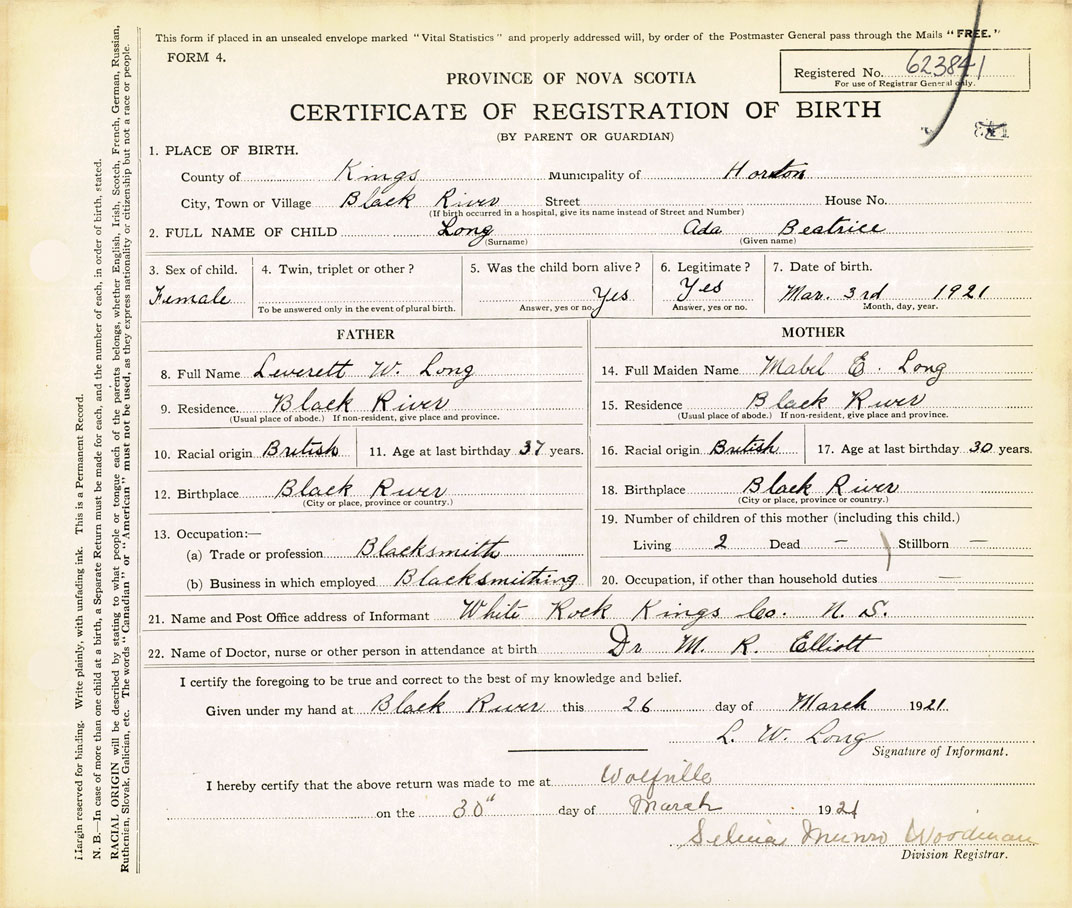 This form if placed in an unsealed envelope marked "Vital Statistics" and properly addressed will, by order of the Postmaster General pass through the Mails "FREE."
FORM 4.
Registered No. 623841
For use of Registrar General only.
PROVINCE OF NOVA SCOTIA
CERTIFICATE OF REGISTRATION OF BIRTH
(BY PARENT OR GUARDIAN)
1. PLACE OF BIRTH.
County of Kings Municipality of Horton
City, Town or Village Black River Street House No.
(If birth occurred in a hospital, give its name instead of Street and Number)
2. FULL NAME OF CHILD Long Ada Beatrice
(Surname) (Given name)
3. Sex of child. 4. Twin, triplet or other? 5. Was the child born alive? 6. Legitimate? 7. Date of birth.
Female Yes Yes Mar. 3rd 1921
To be answered only in the event of plural birth. Answer, yes or no Answer, yes or no. Month, day, year.
FATHER
8. Full Name Leverett W. Long
9. Residence. Black River
(Usual place of abode.) If non-resident, give place and province.
10. Racial origin British 11. Age at last birthday 37 years.
12. Birthplace Black River
(City or place, province or country.)
13. Occupation:—
(a) Trade or profession Blacksmith
(b) Business in which employed Blacksmithing
MOTHER
14. Full Maiden Name Mabel E. Long
15. Residence Black River
(Usual place of abode.) If non-resident, give place and province.
16. Racial origin British 17. Age at last birthday 30 years.
18. Birthplace Black River
(City or place, province or country.)
19. Number of children of this mother (including this child.)
Living 2 Dead — Stillborn —
20. Occupation, if other than household duties —
21. Name and Post Office address of Informant White Rock Kings Co. N. S.
22. Name of Doctor, nurse or other person in attendance at birth Dr M. R. Elliott
I certify the foregoing to be true and correct to the best of my knowledge and belief.
Given under my hand at Black River this 26 day of March 1921.
L. W. Long
Signature of Informant.
I hereby certify that the above return was made to me at Wolfville
on the 30" day of March 1921
Selina Munro Woodman
Division Registrar.
Margin reserved for binding. Write plainly, with unfading ink. This is a Permanent Record.
N. B.—In case of more than one child at a birth, a Separate Return must be made for each, and the number of each, in order of birth, stated.
RACIAL ORIGIN will be described by stating to what people or tongue each of the parents belongs, whether English, Irish, Scotch, French, German, Russian,
Ruthenian, Slovak, Galician, etc. The words "Canadian" or "American" must not be used, as they express nationality or citizenship but not a race or people.